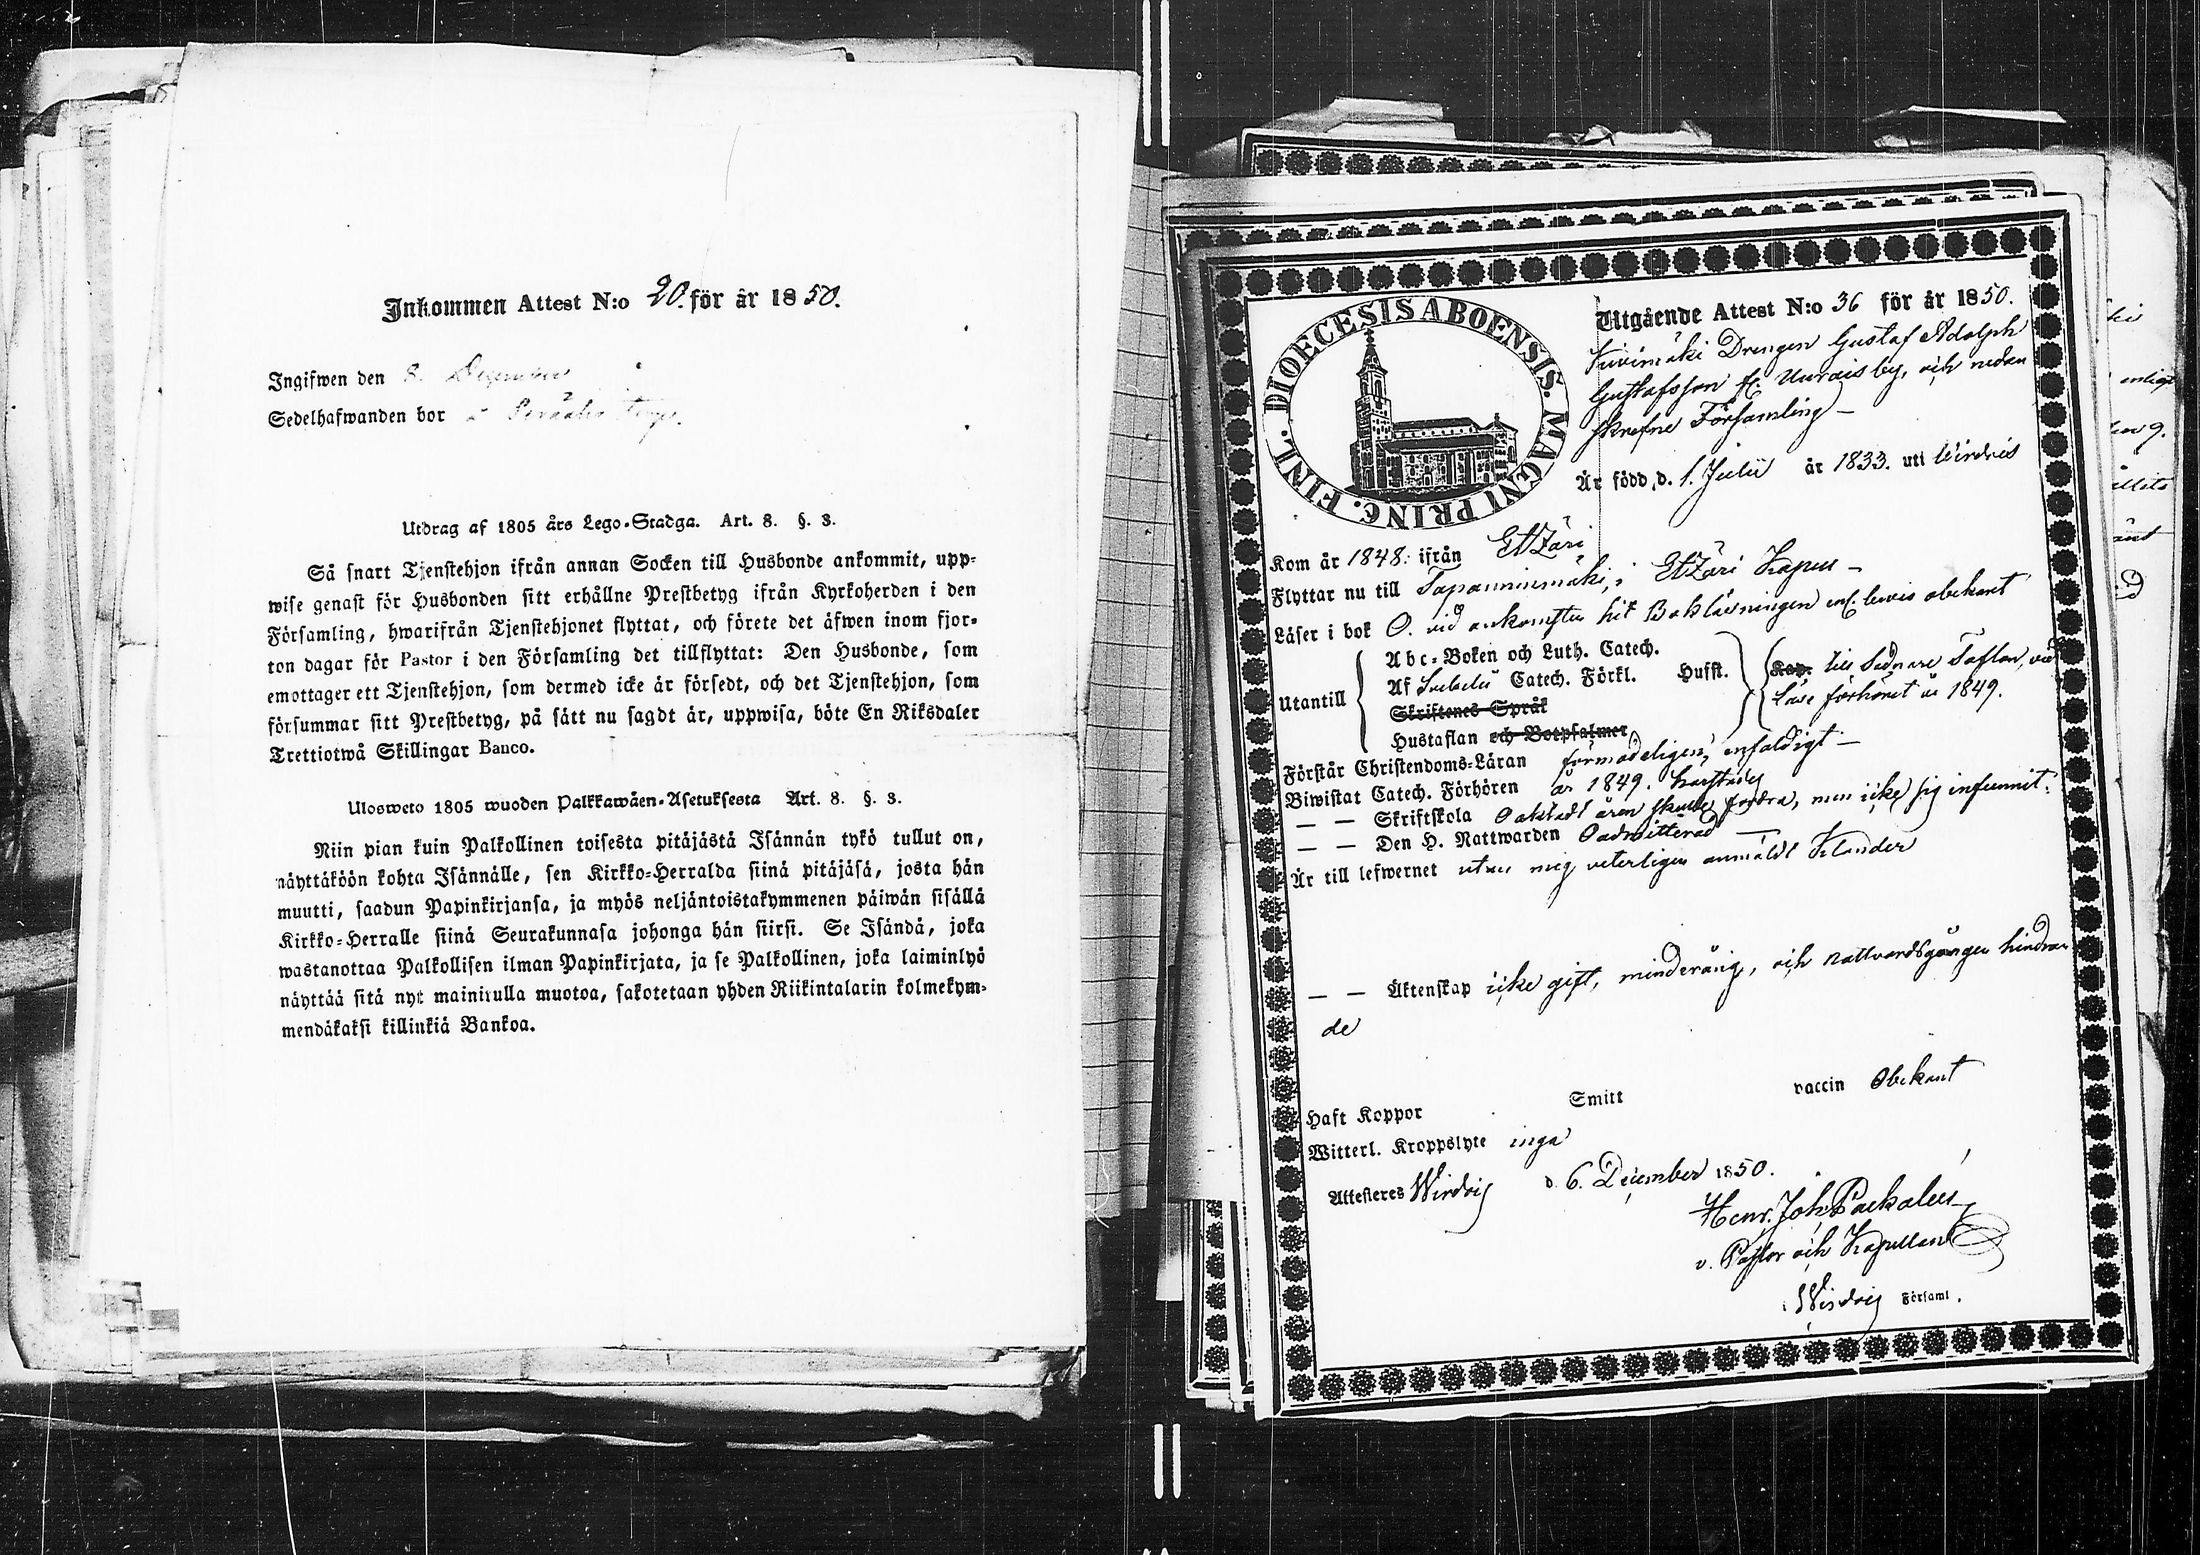 Inkommen Attest N:o 20. för år 1850.
Ingifwen den 8. December
Sedelhafwanden bor
Utdrag af 1805 års Lego-Stadga. Art. 8. §. 3.
Så snart Tjenstehjon ifrån annan Socken till Husbonde ankommit, upp-
wise genast för Husbonden sitt erhållne Prestbetyg ifrån Kyrkoherden i den
Församling, hwarifrån Tjenstehjonet flyttat, och förete det äfwen inom fjor-
ton dagar för Pastor i den Församling det tillflyttat: Den Husbonde, som
emottager ett Tjenstehjon, som dermed icke är försedt, och det Tjenstehjon, som
försummar sitt Prestbetyg, på sätt nu sagdt är, uppwisa, böte En Riksdaler
Trettiotwå Skillingar Banco.
Ulosweto 1805 wuoden Palkkawäen-Asetuksesta Art. 8. §. 3.
Niin pian kuin Palkollinen toisesta pitäjästä Isännän tykö tullut on,
näyttäköön kohta Isännälle, sen Kirkko-Herralda siinä pitäjäsä, josta hän
muutti, saadun Papinkirjansa, ja myös neljäntoistakymmenen päiwän sisällä
Kirkko-Herralle siinä Seurakunnasa johonga hän siirsi. Se Isändä, joka
wastanottaa Palkollisen ilman Papinkirjata, ja se Palkollinen, joka laiminlyö
näyttää sitä nyt mainitulla muotoa, sakotetaan yhden Riikintalarin kolmekym-
mendäkaksi killinkiä Bankoa.
DIOECESIS ABOENSIS. MAGNI PRINC. FINL.
Utgående Attest N:o 36 för år 1850.
Kivimäki Drengen Gustaf Adolph
Gustafsson fr. Uurais by, och nedan
skrefne Församling –
Är född, d. 1. Julii år 1833. uti Wirdois
Kom år 1848: ifrån Etzäri
Flyttar nu till Tapanninmäki, i Etzäri Kapell –
Läser i bok O. vid ankomsten hit Bokläsningen enl. bevis obekant
Utantill
Abc-Boken och Luth. Catech.
Af Svebelii Catech. Förkl. Husst.
Skriftenes Språk
Hustaflan och Botpsalmer
Kap. till Sednare Taflan, vid
Läse förhöret år 1849.
Förstår Christendoms-Läran förmodeligen, enfaldigt –
Biwistat Catech. Förhören år 1849.
— — Skriftskola Oaktadt åren skulle fordra, men icke sig infunnit.
— — Den H. Nattwarden Oadmitterad —
Är till lefwernet utan mig veterligen anmäldt Klander
— — Äktenskap icke gift, minderårig, och nattvardsgången hindran-
de
Haft Koppor Smitt vaccin Obekant
Witterl. Kroppslyte inga
Attesteres Wirdois d. 6. December 1850.
Henr. Joh.
v. Pastor och Kapellan
i Wirdois Församl.